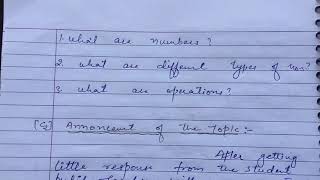 1. What are numbers?
2. What are different types of nos?
3. What are operations?
(C) Announcement of the Topic:-
After getting
little response from the student